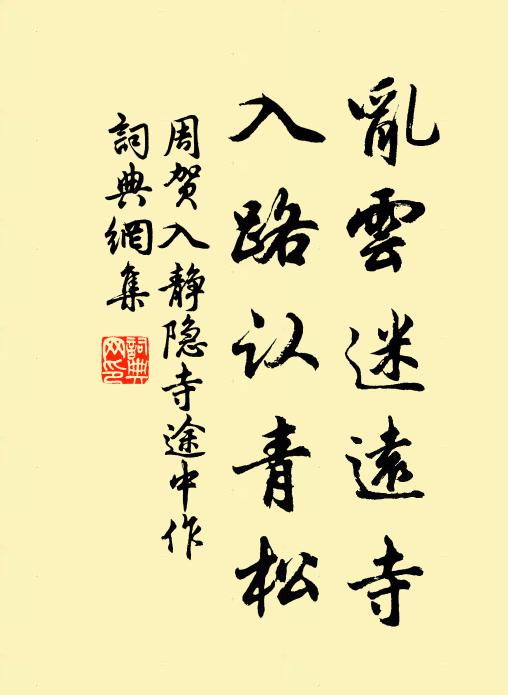 亂雲迷遠寺
入路认青松
周贺入静隐寺途中作
詞典網集
詞典
网印